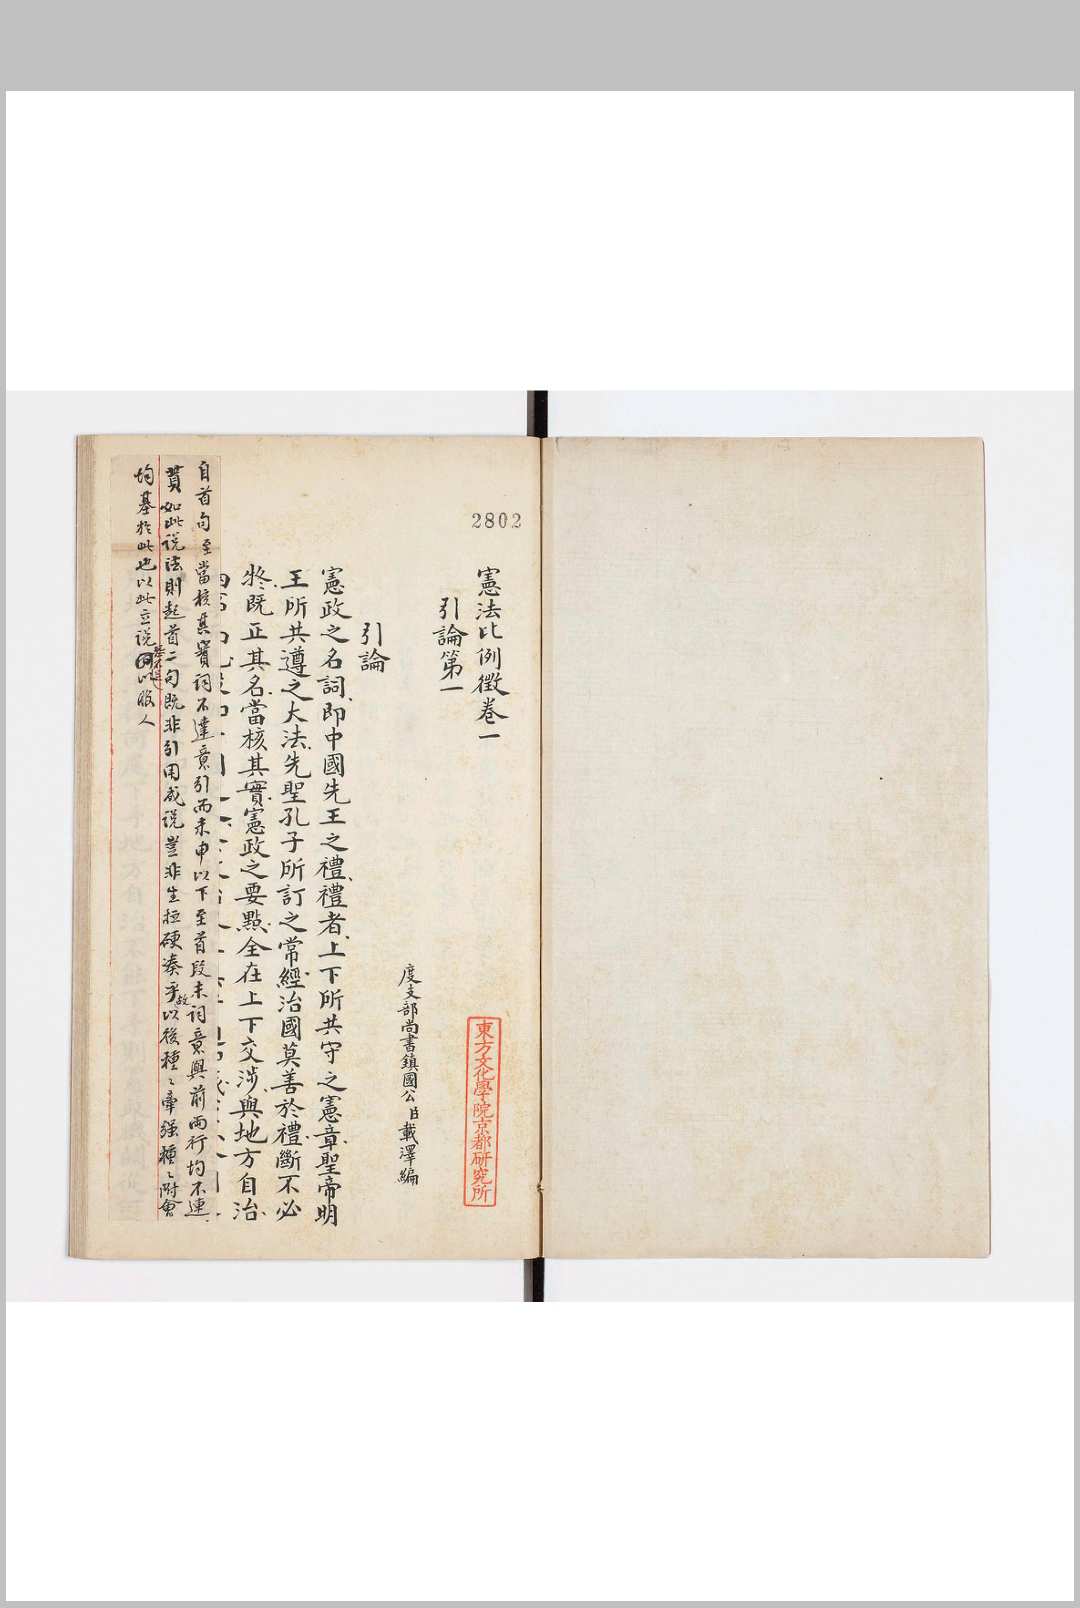 2802
憲法比例徵卷一
引論第一
東方文化學院京都研究所
度支部尚書鎮國公臣載澤編
引論
憲政之名詞即中國先王之禮禮者上下所共守之憲章聖帝明
王所共遵之大法先聖孔子所訂之常經治國莫善於禮斷不必
然既正其名當核其實憲政之要點全在上下交涉與地方自治
自首句至當核其實詞不達意引而未申以下至首段末詞意與前兩行均不連
貫如此說法則起首二句既非引用成說豈非生拉硬湊乎故以後種々牽強種々附會
均基於此也以此立說恐不足以服人